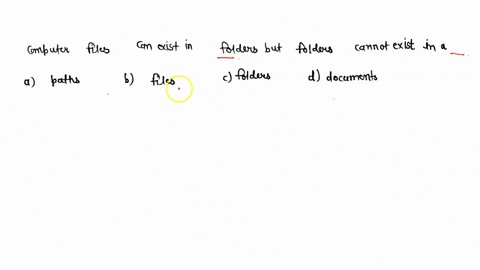 Computer files can exist in folders but folders cannot exist in a __
a) paths b) files c) folders d) documents